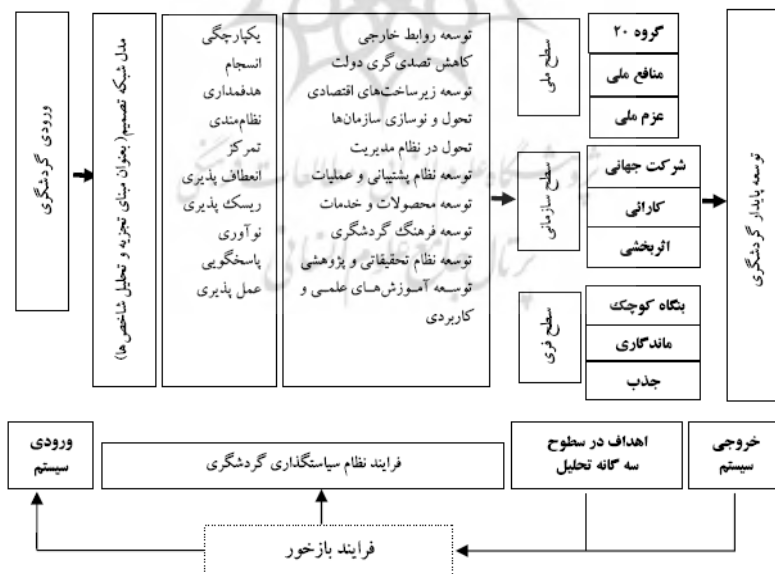 ورودی گردشگری
مدل شبکه تصمیم( بعنوان مبنای تجزیه و تحلیل شاخص ها)
یکپارچگی
انسجام
هدفمداری
نظام‌مندی
تمرکز
انعطاف پذیری
ریسک پذیری
نوآوری
پاسخگویی
عمل پذیری
توسعه روابط خارجی
کاهش تصدی گری دولت
توسعه زیرساخت‌های اقتصادی
تحول و نوسازی سازمان‌ها
تحول در نظام مدیریت
توسعه نظام پشتیبانی و عملیات
توسعه محصولات و خدمات
توسعه فرهنگ گردشگری
توسعه نظام تحقیقاتی و پژوهشی
توسعه آموزش‌های علمی و
کاربردی
سطح ملی
گروه ۲۰
منافع ملی
عزم ملی
سطح سازمانی
شرکت جهانی
کارائی
اثربخشی
سطح فری
بنگاه کوچک
ماندگاری
جذب
توسعه پایدار گردشگری
ورودی
سیستم
فرایند نظام سیاستگذاری گردشگری
اهداف در سطوح
سه گانه تحلیل
خروجی
سیستم
فرایند بازخور
پژوهشگاه علوم انسانی و مطالعات فرهنگی
پرتال جامع علوم انسانی